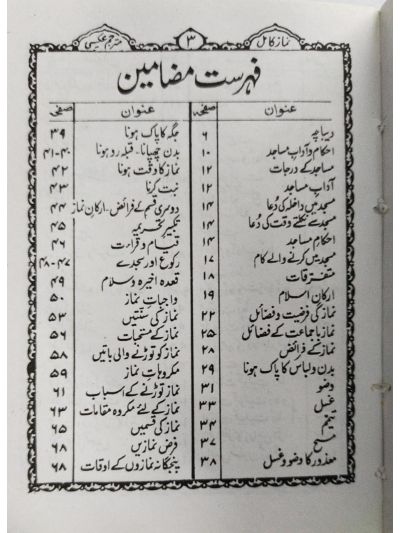 نماز کامل ۳ مترجم عکسی
فہرست مضامین
عنوان صفحہ
دیباچہ ۶
احکام و آداب مساجد ۱۰
مساجد کے درجات ۱۲
آداب مساجد ۱۲
مسجد میں داخلہ کی دُعا ۱۴
مسجد سے نکلتے وقت کی دُعا ۱۴
احکام مساجد ۱۴
مسجد میں کرنے والے کام ۱۷
متفرقات ۱۸
ارکان اسلام ۱۹
نماز کی فرضیت و فضائل ۲۲
نماز باجماعت کے فضائل ۲۵
نماز کے فرائض ۲۸
بدن و لباس کا پاک ہونا ۲۹
وضو ۳۱
غسل ۳۳
تیمم ۳۴
مسح ۳۷
معذور کا وضو و غسل ۳۸
عنوان صفحہ
جگہ کا پاک ہونا ۳۹
بدن چھپانا - قبلہ رو ہونا ۴۰-۴۱
نماز کا وقت ہونا ۴۲
نیت کرنا ۴۳
دوسری قسم کے فرائض - ارکان نماز ۴۴
تکبیر تحریمہ ۴۵
قیام و قراءت ۴۶
رکوع اور سجدے ۴۷-۴۸
قعدہ اخیرہ و سلام ۴۹
واجبات نماز ۵۰
نماز کی سنتیں ۵۳
نماز کے مستحبات ۵۶
نماز کو توڑنے والی باتیں ۵۸
مکروہات نماز ۵۹
نماز توڑنے کے اسباب ۶۱
نماز کے لئے مکروہ مقامات ۶۳
نماز کی قسمیں ۶۵
فرض نمازیں ۶۸
پنجگانہ نمازوں کے اوقات ۶۸